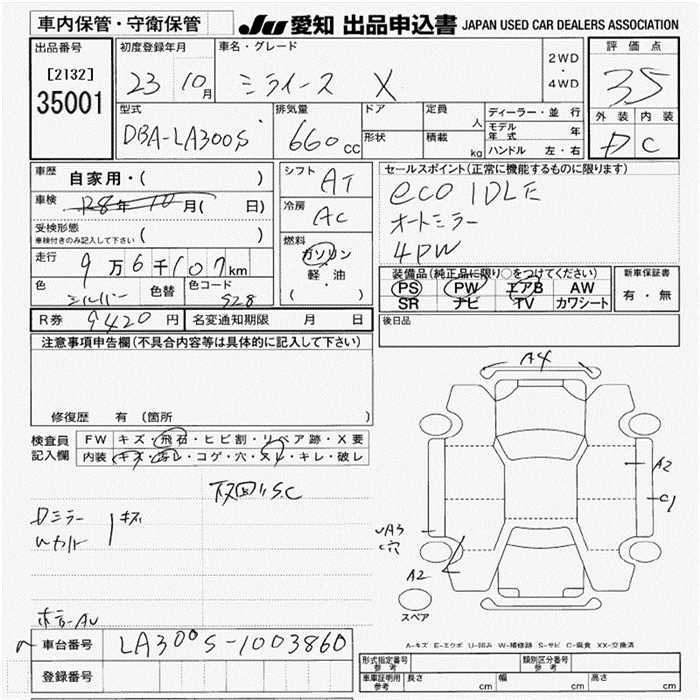 車内保管・守衛保管
JU 愛知 出品申込書 JAPAN USED CAR DEALERS ASSOCIATION
出品番号
[2132]
35001
初度登録年月
23 10月
車名・グレード
ミライース X
2WD
・
4WD
評価点
35
外装 内装
D C
型式
DBA-LA300S
排気量
660cc
ドア
形状
定員 人
積載 kg
ディーラー・並行
モデル年式 年
ハンドル 左・右
車歴 自家用・( )
車検 28年10月( 日)
受検形態
車検付きのみ記入して下さい ( )
走行 9万6千107km
色 シルバー 色替 色コード S28
シフト AT
冷房 AC
燃料
ガソリン
軽・油
( )
セールスポイント(正常に機能するものに限ります)
eco IDLE
オートミラー
4PW
装備品(純正品に限り○をつけてください)
PS PW エアB AW
SR ナビ TV カワシート
新車保証書
有・無
R券 9420円 名変通知期限 月 日
後日品
注意事項申告欄(不具合内容等は具体的に記入して下さい)
修復歴 有 (箇所
検査員記入欄
FW キズ・飛石・ヒビ割・リペア跡・X要
内装 キズ・汚レ・コゲ・穴・スレ・キレ・破レ
Dミラー
ボデー
A4
A2
C1
A3
穴
A2
スペア
A-キズ E-エクボ U-凹み W-補修跡 S-サビ C-腐食 XX-交換済
車台番号 LA300S-1003860
登録番号
形式指定番号 参考
類別区分番号 参考
車庫証明用 参考 長さ cm 幅 cm 高さ cm